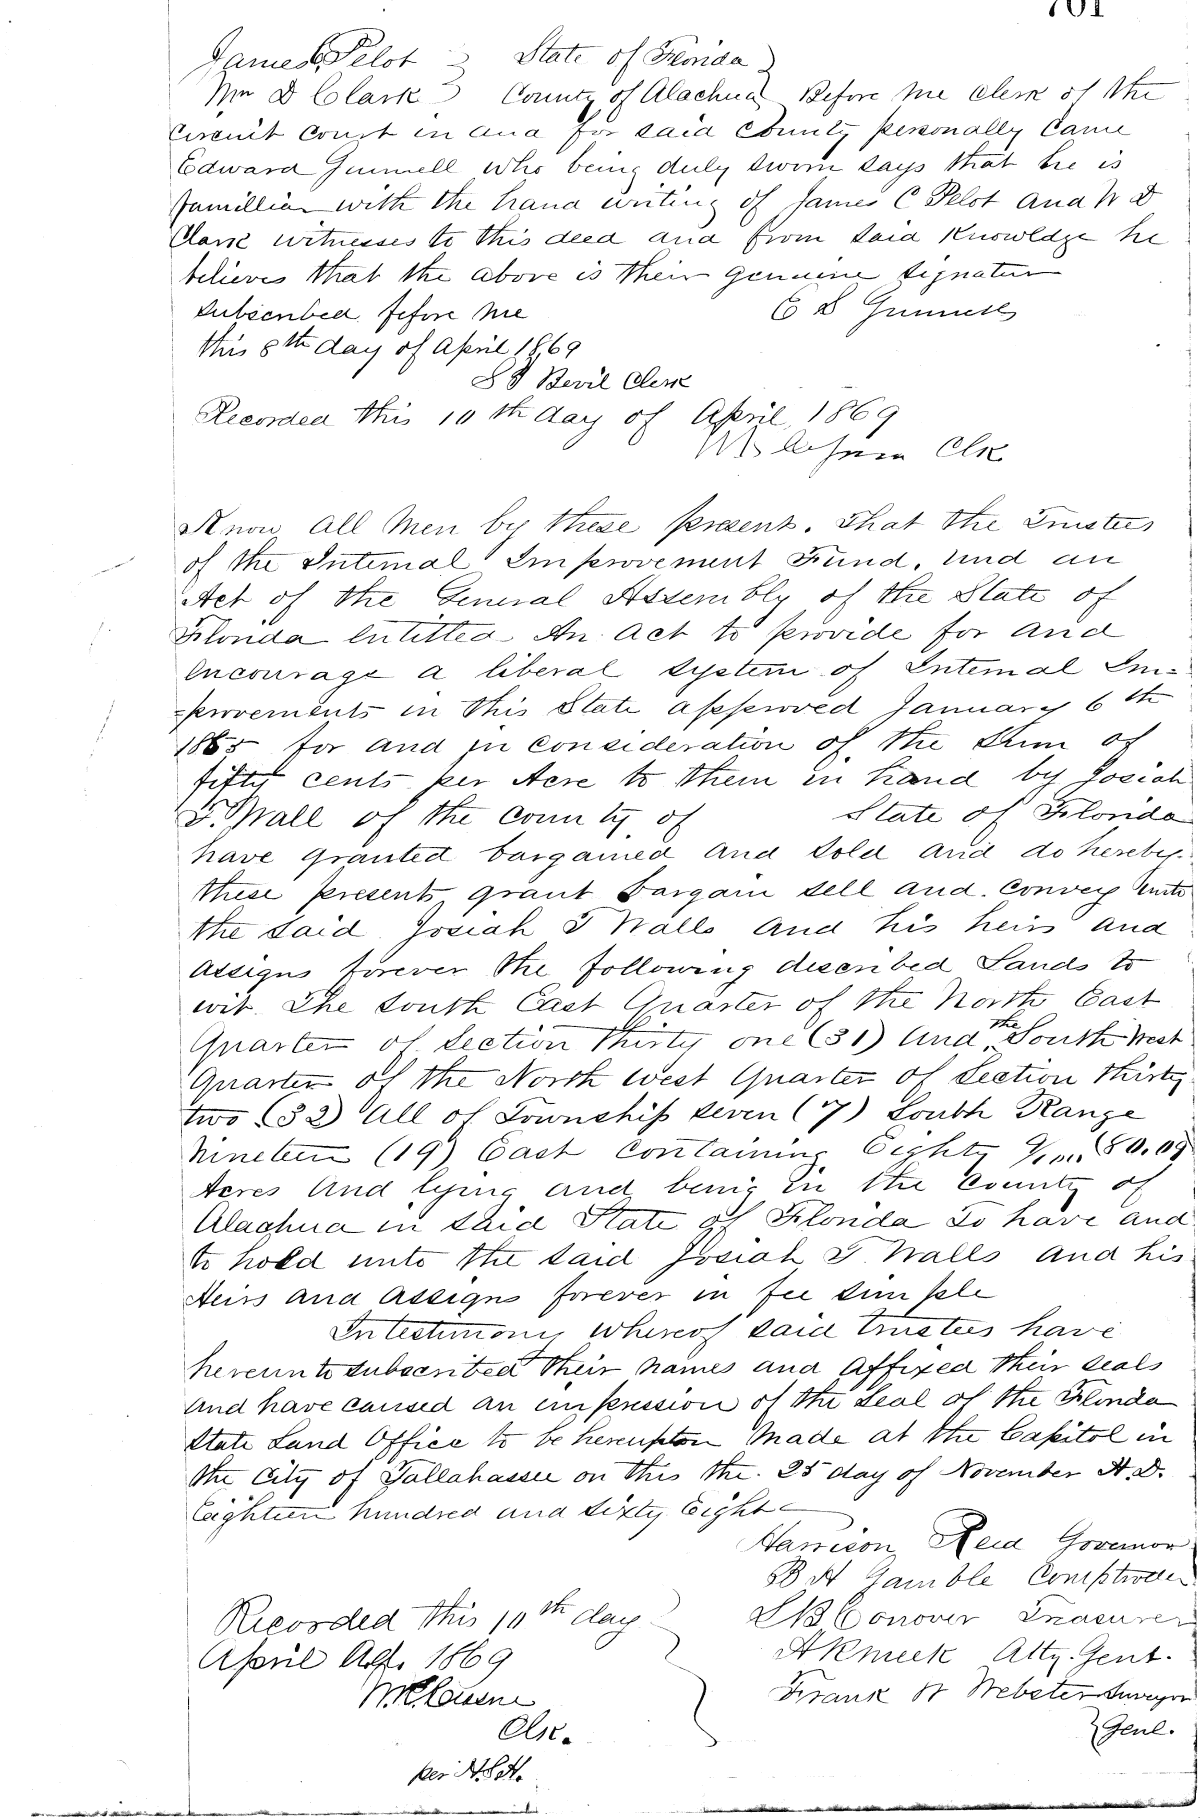 701
James C Pelot } State of Florida }
Wm D Clark } County of Alachua } Before me clerk of the
Circuit Court in and for said County personally Came
Edward Gunnell who being duly sworn says that he is
familliar with the hand writing of James C Pelot and W D
Clark witnesses to this deed and from said Knowldge he
believes that the above is their genuine signatur
subscribed before me E S Gunnell
this 8th day of April 1869
Bevil Clerk
Recorded this 10th day of April 1869
Clk
Know all Men by these present. That the Trustees
of the Internal Improvement Fund. Und an
Act of the General Assembly of the State of
Florida entitled An act to provide for and
encourage a liberal system of Internal Im=
=provements in this State approved January 6th
1855 for and in consideration of the Sum of
fifty cents per Acre to them in hand by Josiah
T. Wall of the County of State of Florida
have granted bargained and sold and do hereby
these presents grant bargain sell and convey unto
the said Josiah T Walls and his heirs and
assigns forever the following described Lands to
wit. The South East Quarter of the North East
Quarter of Section thirty one (31) and the South West
Quarter of the North West Quarter of Section thirty
two (32) all of Township seven (7) South Range
Nineteen (19) East containing Eighty 9/100 (80.09
Acres and lying and being in the County of
Alachua in said State of Florida To have and
to hold unto the said Josiah T. Walls and his
Heirs and assigns forever in fee simple
In testimony whereof said trustees have
hereunto subscribed their names and affixed their seals
and have caused an impression of the Seal of the Florida
State Land Office to be hereupton made at the Capitol in
the City of Tallahassee on this the. 25 day of November A.D.
Eighteen hundred and Sixty Eight
Harrison Reed Governor
B H Gamble Comptroller
Recorded this 10th day S B Conover Treasurer
April A.D. 1869 A R Meek Atty. Genl.
Frank W Webster Surveyor
Clk. Genl.
per